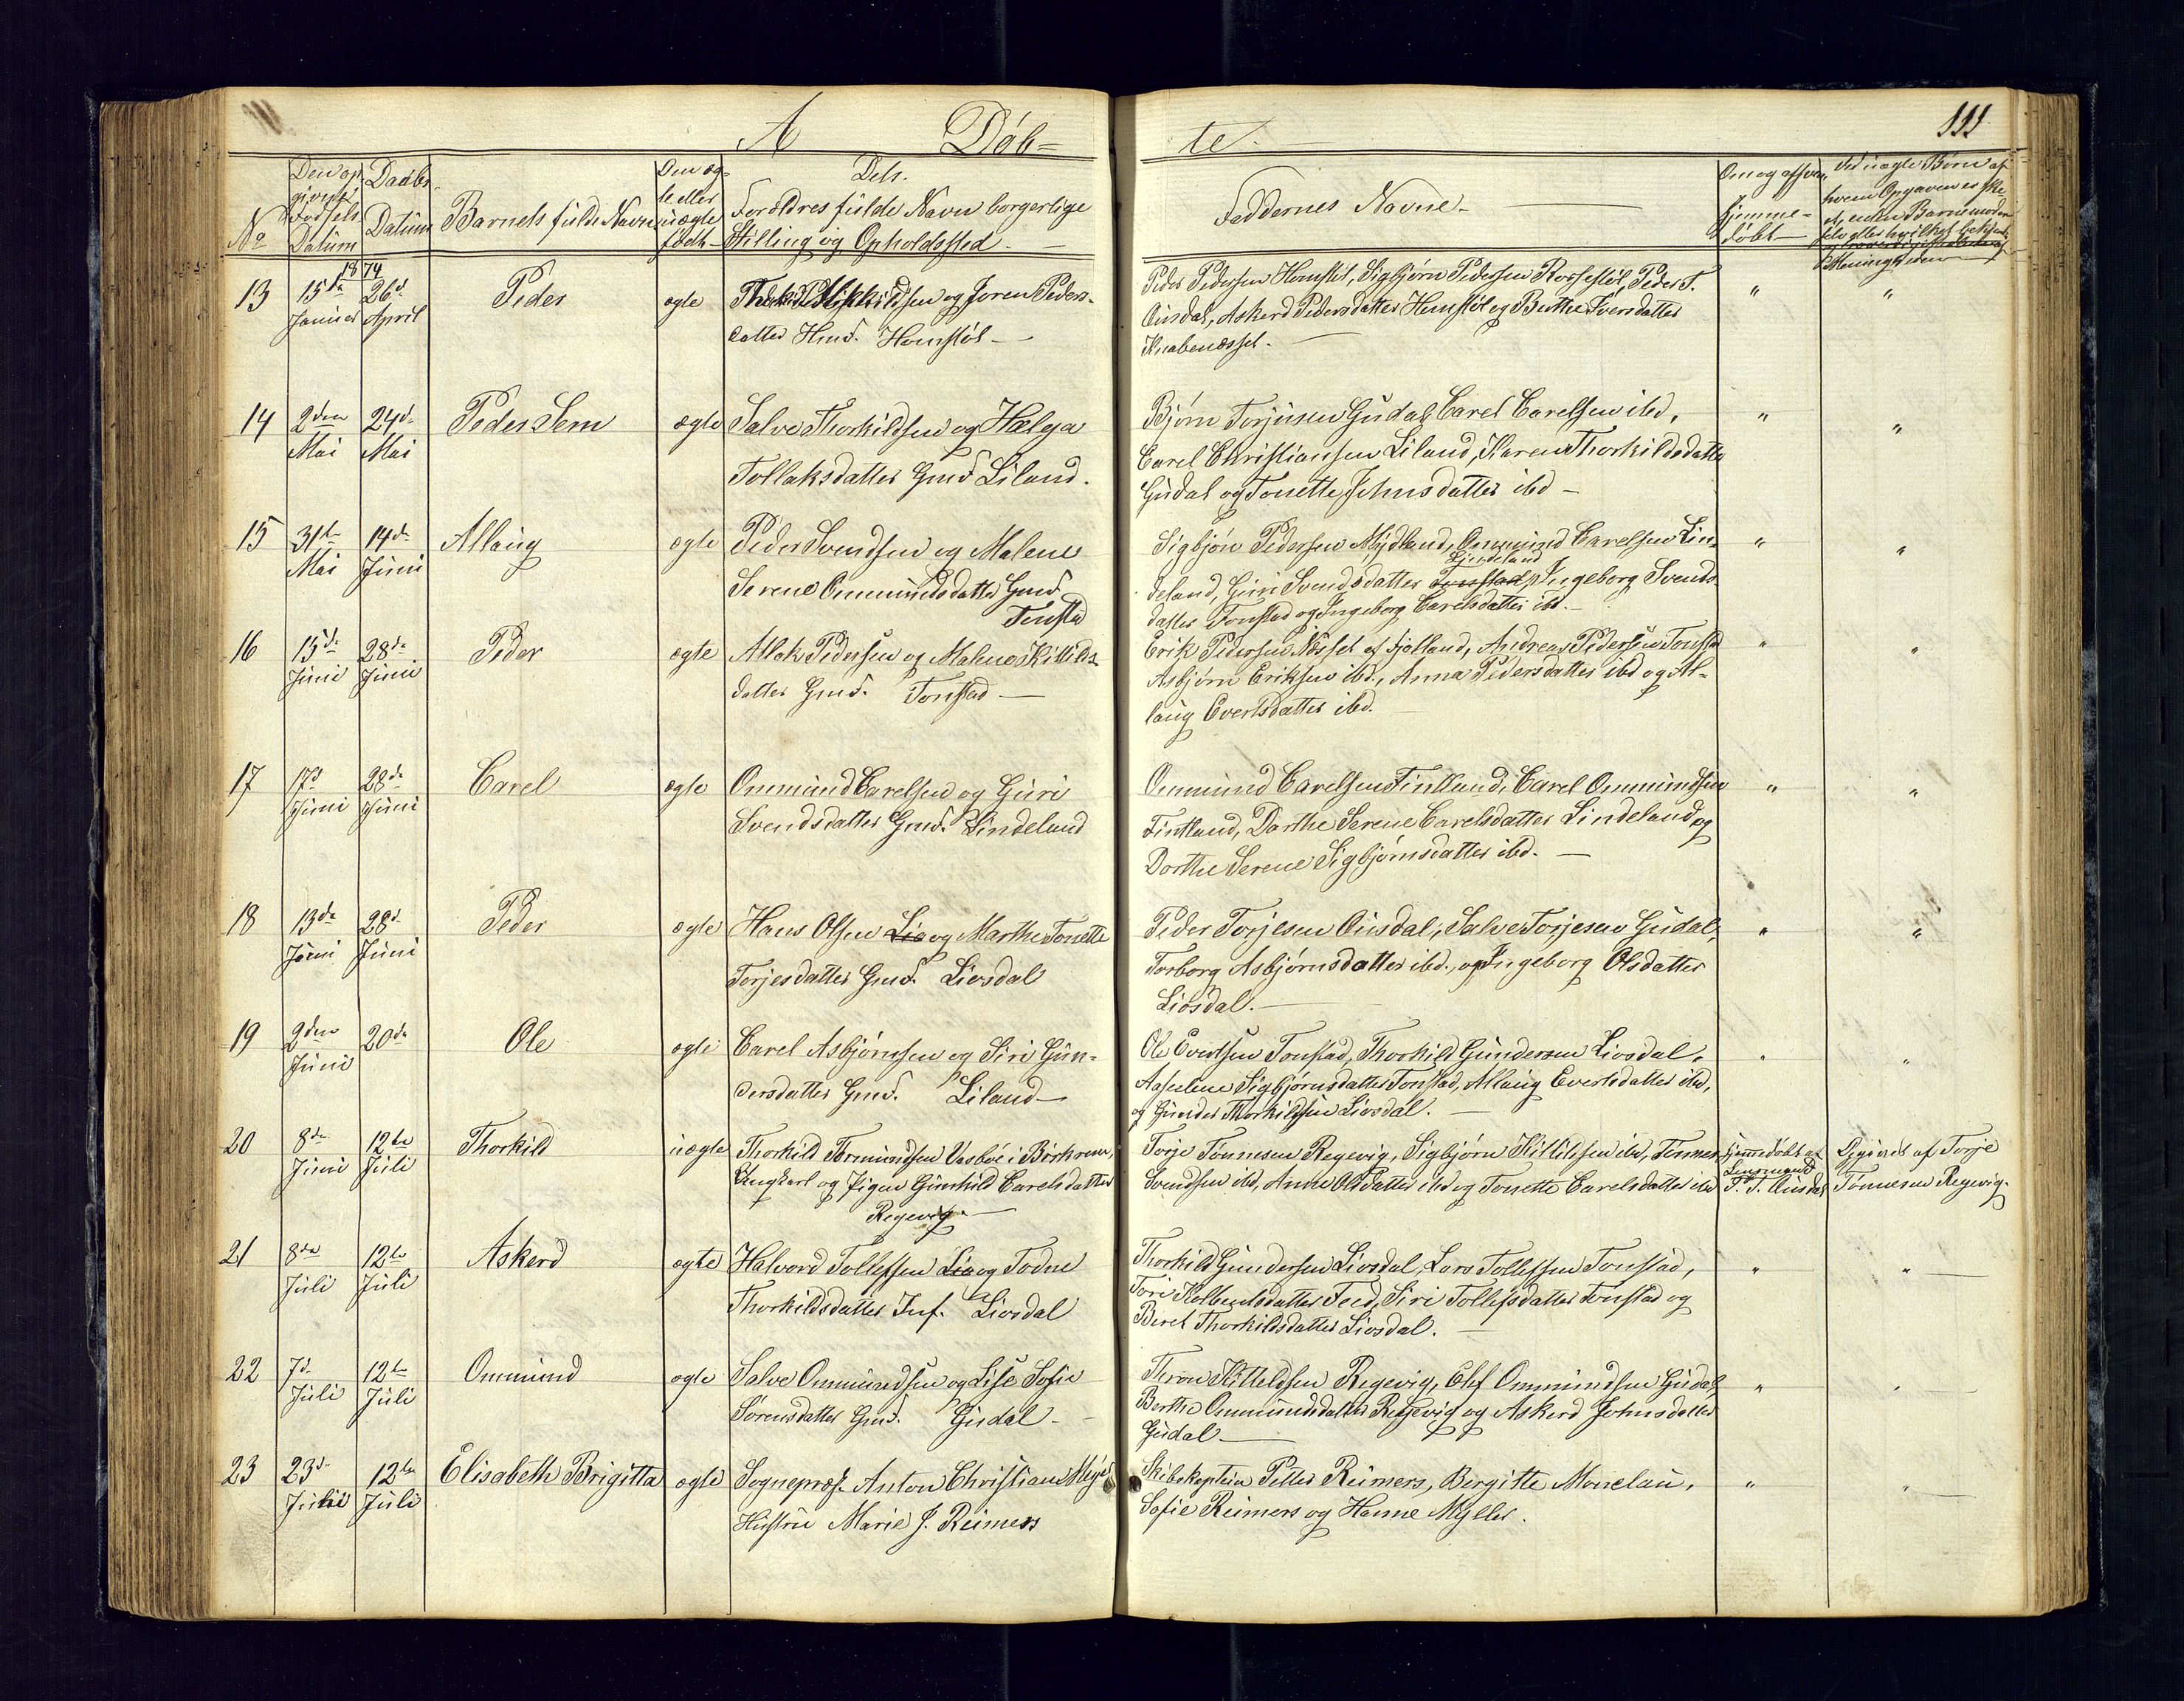 A Døb=
te. 111
No
Den op
givne
Fødsels
Datum
Daabs
Datum
Barnets fulde Navn
Den æg-
te eller
uægte
født
Dets.
Forældres fulde Navn borgerlige
Stilling og Opholdssted
Faddernes Navne
Om og af hvem
hjemme-
døbt
Ved uægte Børn af
hvem Opgaven er ske
1874
13 15de 26d Peder ægte og Joren Peders-
Januar April datter Hmd. Homstøl
Peder Pedersen Homstøl, Sigbjørn Pedersen Rossestøl, Peder T. " "
Ousdal, Askerd Pedersdatter Homstøl og Berthe Iversdatter
Knabenæsset.
14 2den 24d Peder Sem ægte Salve Thorkildsen og Hælga
Mai Mai Tollaksdatter Gmd Liland.
Bjørn Torjusen Gudal, Carel Carelsen ibd, " "
Carel Christiansen Liland, Karen Thorkildsdatter
Gudal og Tonette Johnsdatter ibd
15 31te 14d Allaug ægte Peder Svendsen og Malene
Mai Juni Serene Ommundsdatter Gmd
Tonstad
Sigbjørn Pedersen Mydland, Ommund Carelsen Lin- " "
Lindeland
deland, Guri Svendsdatter Tonstad, Ingeborg Svends
datter Tonstad og Ingeborg Carelsdatter ibd.
16 15de 28de Peder ægte Atlak Pedersen og Malene Kittilds-
Juni Juni datter Gmd. Tonstad
Erik Pedersen Næsset af Fjotland, Andreas Pedersen Tonstad " "
Asbjørn Eriksen ibd., Anna Pedersdatter ibd og Al-
laug Evertsdatter ibd.
17 17d 28de Carel ægte Ommund Carelsen og Guri
Juni Juni Svendsdatter Gmd. Lindeland
Ommund Carelsen Fintland, Carel Ommundsen " "
Fintland, Dorthe Serene Carelsdatter Lindeland og
Dorthe Serene Sigbjørnsdatter ibd.
18 13de 28d Peder ægte Hans Olsen Lio og Marthe Tonette
Juni Juni Torjesdatter Gmd. Liosdal
Peder Torjesen Ousdal, Salve Torjesen Gudal, " "
Torborg Asbjørnsdatter ibd., og Ingeborg Olsdatter
Liosdal.
19 2den 20de Ole ægte Carel Asbjørnsen og Siri Gun-
Juni dersdatter Gmd. Liland
Ole Evertsen Tonstad, Thorkild Gundersen Liosdal, " "
Aaselene Sigbjørnsdatter Tonstad, Allaug Evertsdatter ibd,
og Gunder Thorkildsen Liosdal.
20 8de 12te Thorkild uægte Thorkild Tormundsen Vasbøe i Birkrem,
Juni Juli Ungkarl og Pigen Gunhild Carelsdatter
Regevig
Torje Tønnesen Regevig, Sigbjørn Kittilsen ibd, Tønnes Hjemmedøbt af Opgivet af Torje
Lensmand
Svendsen ibd, Anne Olsdatter ibd og Tonette Carelsdatter ibd P. T. Ousdal Tønnesen Regevig.
21 8de 12te Askerd ægte Halvord Tollefsen Lio og Todne
Juli Juli Thorkildsdatter Inf. Liosdal
Thorkild Gundersen Liosdal, Lars Tollefsen Tonstad, " "
Tori Kolbentsdatter Feed, Siri Tollefsdatter Tonstad og
Beret Thorkildsdatter Liosdal.
22 7d 12te Ommund ægte Salve Ommundsen og Lise Sofie
Juli Juli Sørensdatter Gmd. Gudal
Thron Kitteldsen Regevig, Elef Ommundsen Gudal, " "
Berthe Ommundsdatter Regevig og Askerd Johnsdatter
Gudal
23 23d 12te Elisabeth Brigitta ægte Sognepræst Anton Christian
Juli Hustru Marie J. Reimers
Skibskaptein Petter Reimers, Bergitte Monclau, " "
Sofie Reimers og Hanne Myller.